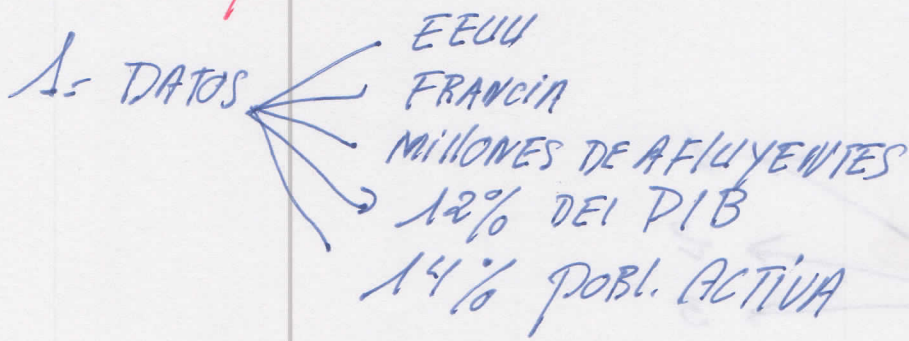 1= DATOS
EEUU
FRANCIA
MILLONES DE AFLUYENTES
12% DEL PIB
14% POBL. ACTIVA